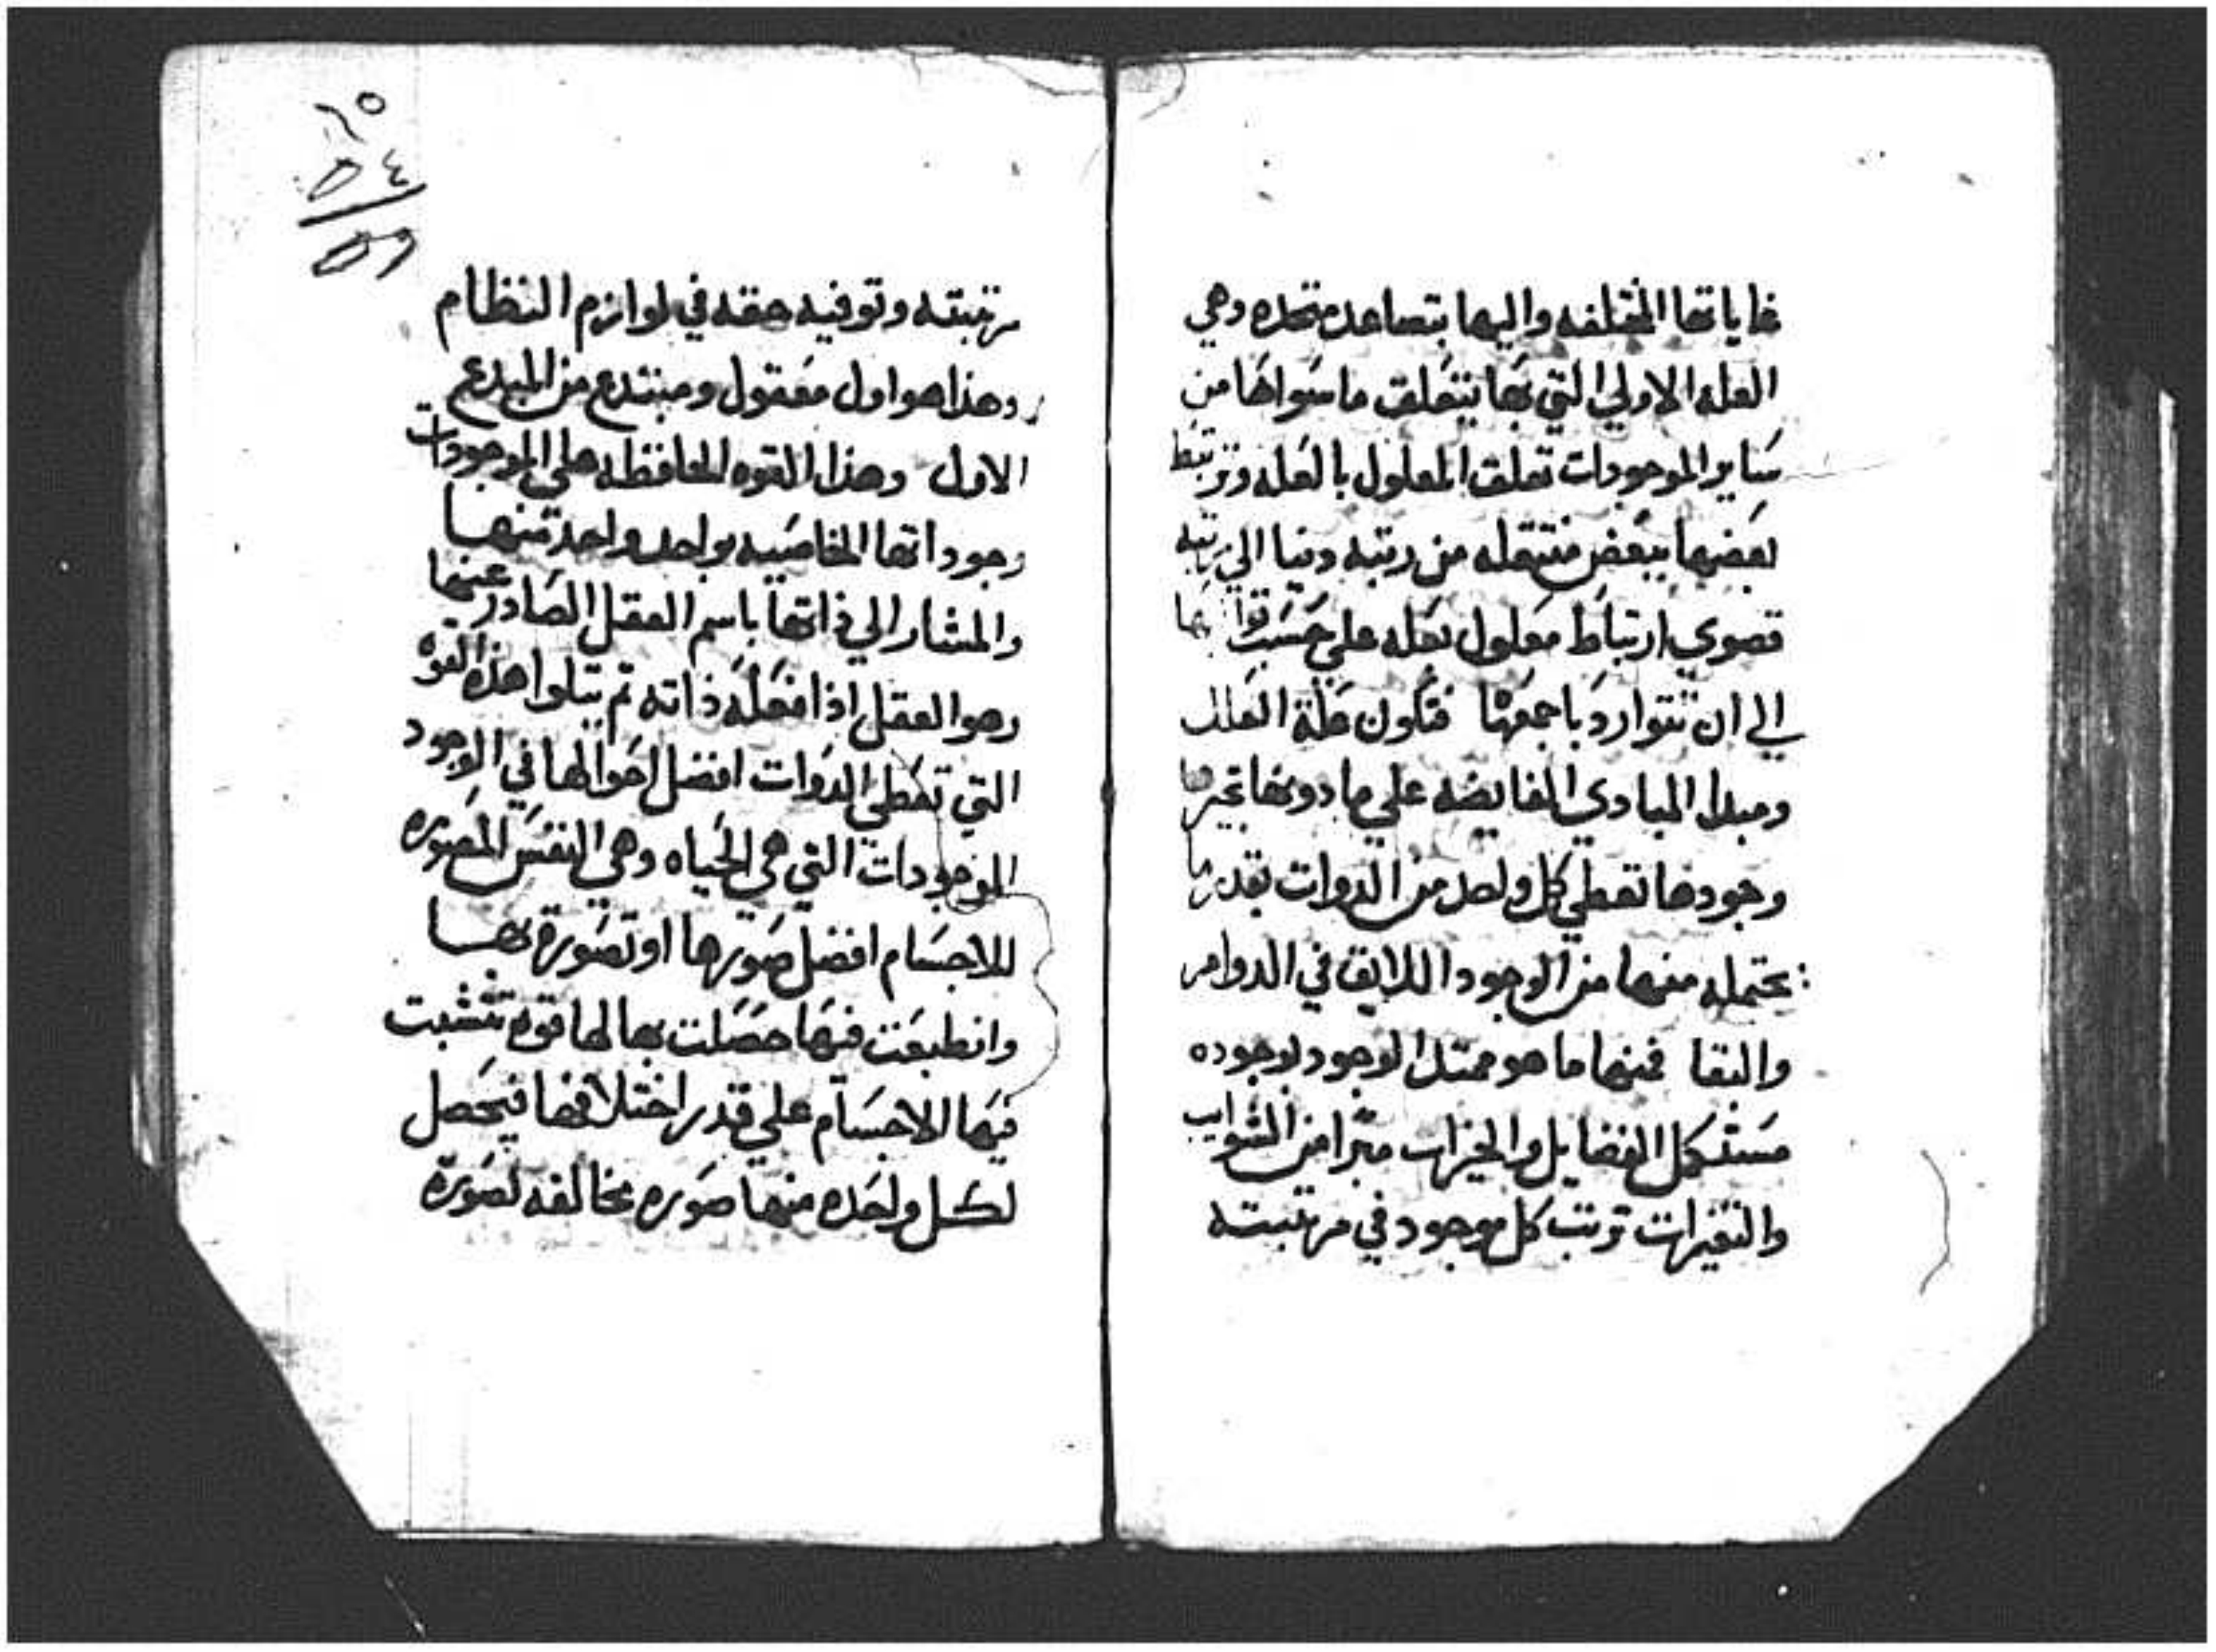 غاياتها المختلفه واليها يتصاعد متحده وهي
العله الاولي التي بها يتعلق ما سواها من
ساير الموجودات تعلق المعلول بالعله وترتبط
بعضها ببعض منتقله من رتبه دنيا الي رتبه
قصوي ارتباط معلول بعله علي حسب
الي ان تتوارد باجمعها فتكون علة العلل
ومبدا المبادي الفايضه علي ما دونها
وجودها تعطي كل واحد من الدوات بقدر ما
يحتمله منها من الوجود اللايق في الدوام
والبقا فمنها ما هو ممتد الوجود لوجوده
مستكمل الفضايل والخيرات مبرا من الشوايب
والتغيرات ترتب كل موجود في مرتبته
مرتبته وتوفيه حقه في لوازم النظام
وهذا هو اول معقول ومبتدع من المبدع
الاول وهذا القوه الحافظه علي الموجودات
وجوداتها الخاصيه بواحد واحد منها
والمشار الي ذاتها باسم العقل الصادر عنها
وهو العقل اذا فعله ذاته ثم يتلوا هذه القوه
التي تعطي الدوات افضل احوالها في الوجود
الموجودات التي هي الحياه وهي النفس المصوره
للاجسام افضل صورها او تصورة بها
وانطبعت فيها حصلت بها لها قوه تتشبت
فيها الاجسام علي قدر اختلافها فيحصل
لكل واحده منها صوره مخالفه لصورة